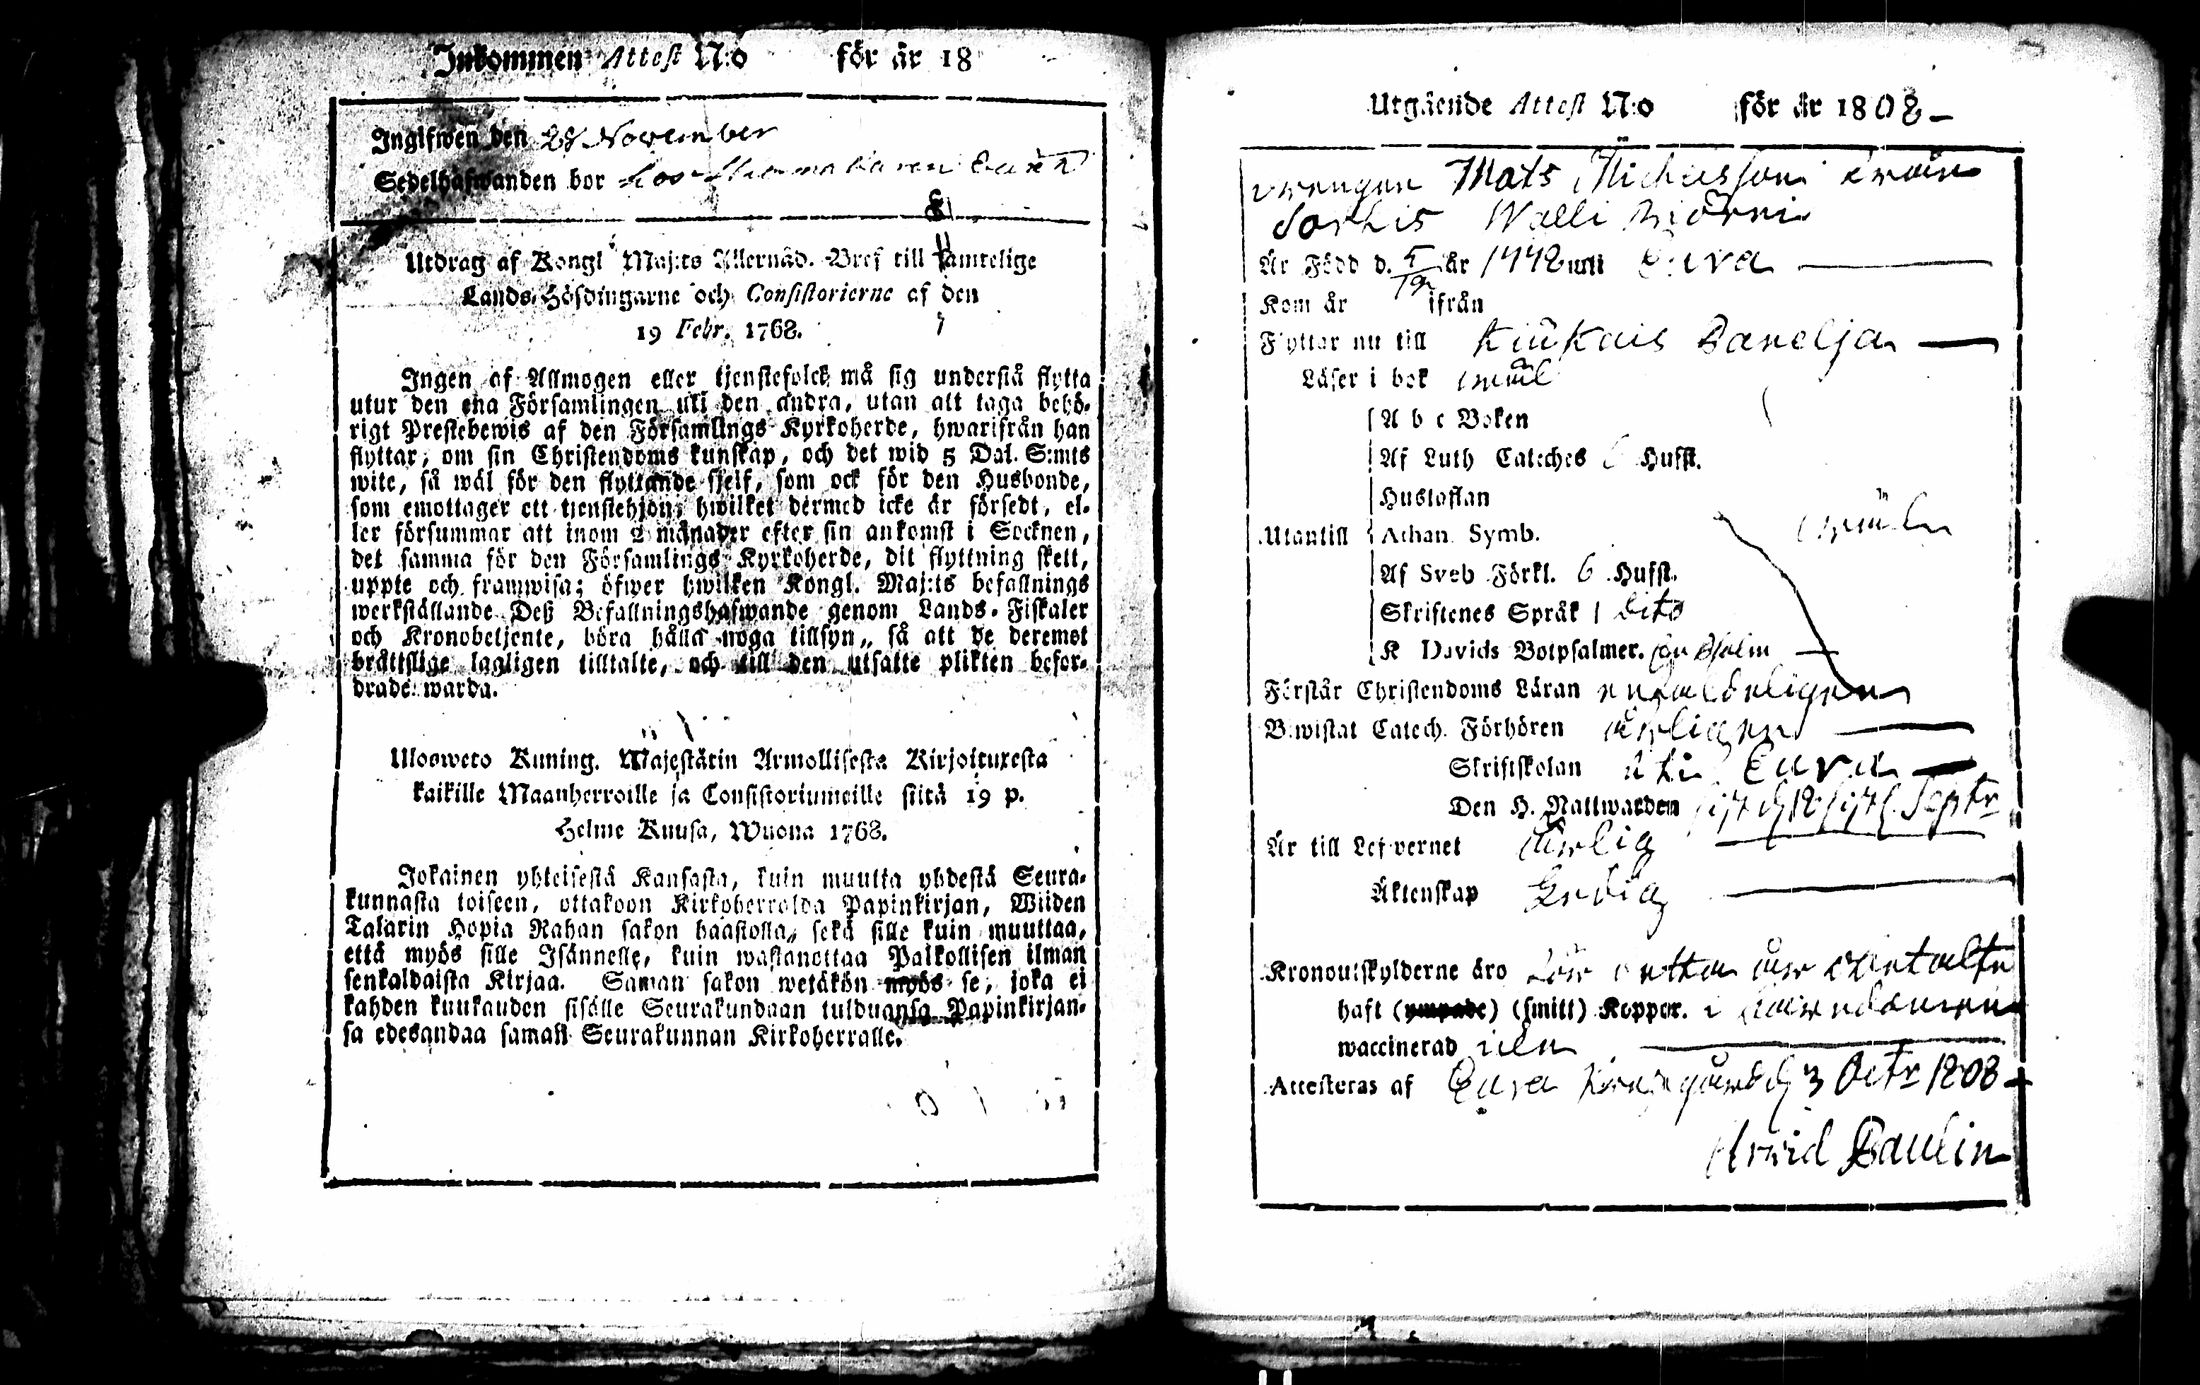 Inkommen Attest N:o för år 18
Ingifwen den 28 November
Sedelhafwanden bor hos
Utdrag af Kongl Maj:ts Allernåd. Bref till samtelige
Lands-Höfdingarne och Consistorierne af den
19 Febr. 1768.
Ingen af Allmogen eller tjenstefolck må sig understå flytta
utur den ena Församlingen uti den andra, utan att taga behö-
rigt Prestebewis af den Församlings Kyrkoherde, hwarifrån han
flyttar, om sin Christendoms kunskap, och det wid 5 Dal. S:mts
wite, så wäl för den flyttande sjelf, som ock för den Husbonde,
som emottager ett tjenstehjon, hwilket dermed icke är försedt, el-
ler försummar att inom 2 månader efter sin ankomst i Socknen,
det samma för den Församlings Kyrkoherde, dit flyttning skett,
uppte och framwisa; öfwer hwilken Kongl. Maj:ts befallnings
werkställande Deß Befallningshafwande genom Lands-Fiskaler
och Kronobetjente, böra hålla noga tillsyn, så att de deremot
bråttslige lagligen tilltalte, och till den utsatte plikten befor-
drade warda.
Ulosweto Kuning. Majestätin Armollisesta Kirjoituxesta
kaikille Maanherroille ja Consistoriumeille siitä 19 p.
Helme Kuusa, Wuona 1768.
Jokainen yhteisestä Kansasta, kuin muutta yhdestä Seura-
kunnasta toiseen, ottakoon Kirkoherralda Papinkirjan, Wiiden
Talarin Hopia Rahan sakon haastolla, sekä sille kuin muuttaa,
että myös sille Isännelle, kuin wastanottaa Palkollisen ilman
senkaldaista Kirjaa. Saman sakon wetäkön myös se, joka ei
kahden kuukauden sisälle Seurakundaan tulduansa Papinkirjan-
sa edesandaa saman Seurakunnan Kirkoherralle.
Utgående Attest N:o för år 1808
Drengen Mats Michelsson ifrån
Sorkis
Är Född d. 5/12 år 1778 uti Eura
Kom år ifrån
Flyttar nu till Kiukais Panelja
Läser i bok
A b c Boken
Af Luth Cateches 6 Hufst.
Hustaflan
Utantill Athan. Symb.
Af Sveb Förkl. 6 Hufst.
Skriftenes Språk dito
K Davids Botpsalmer.
Förstår Christendoms Läran enfaldeligen
Bewistat Catech. Förhören årligen
Skriftskolan uti Eura
Den H. Nattwarden sist d 18 sistl. Septr
Är till Lefvernet ärlig
Äktenskap ledig
Kronoutskylderne äro för detta år
haft (ympade) (smitt) Koppor. i barndomen
waccinerad icke
Attesteras af Eura Prestgård d 3 Octr 1808
Arvid Paulin